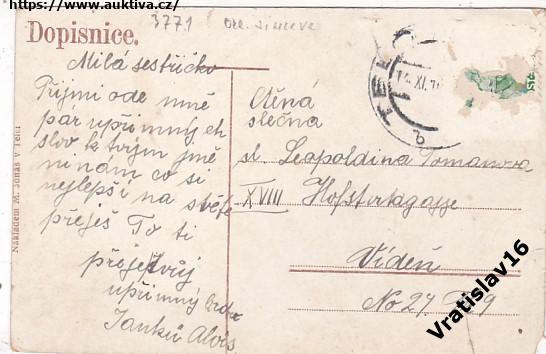 https://www.auktiva.cz/
3771
Dopisnice.
Milá sestřičko
Přijmi ode mně
par upřimnych
slov k tvym jmé
ninám co si
nejlepší na světe
přeješ To ti
přeje tvůj
upřimný
Janků Alois
Nákladem M. Jonáš v Telči
Ctěná
slečna
sl. Leapoldina Tomanova
XVIII Hofstokgasse
Vídeň
No 27
TEL
XI
Vratislav16